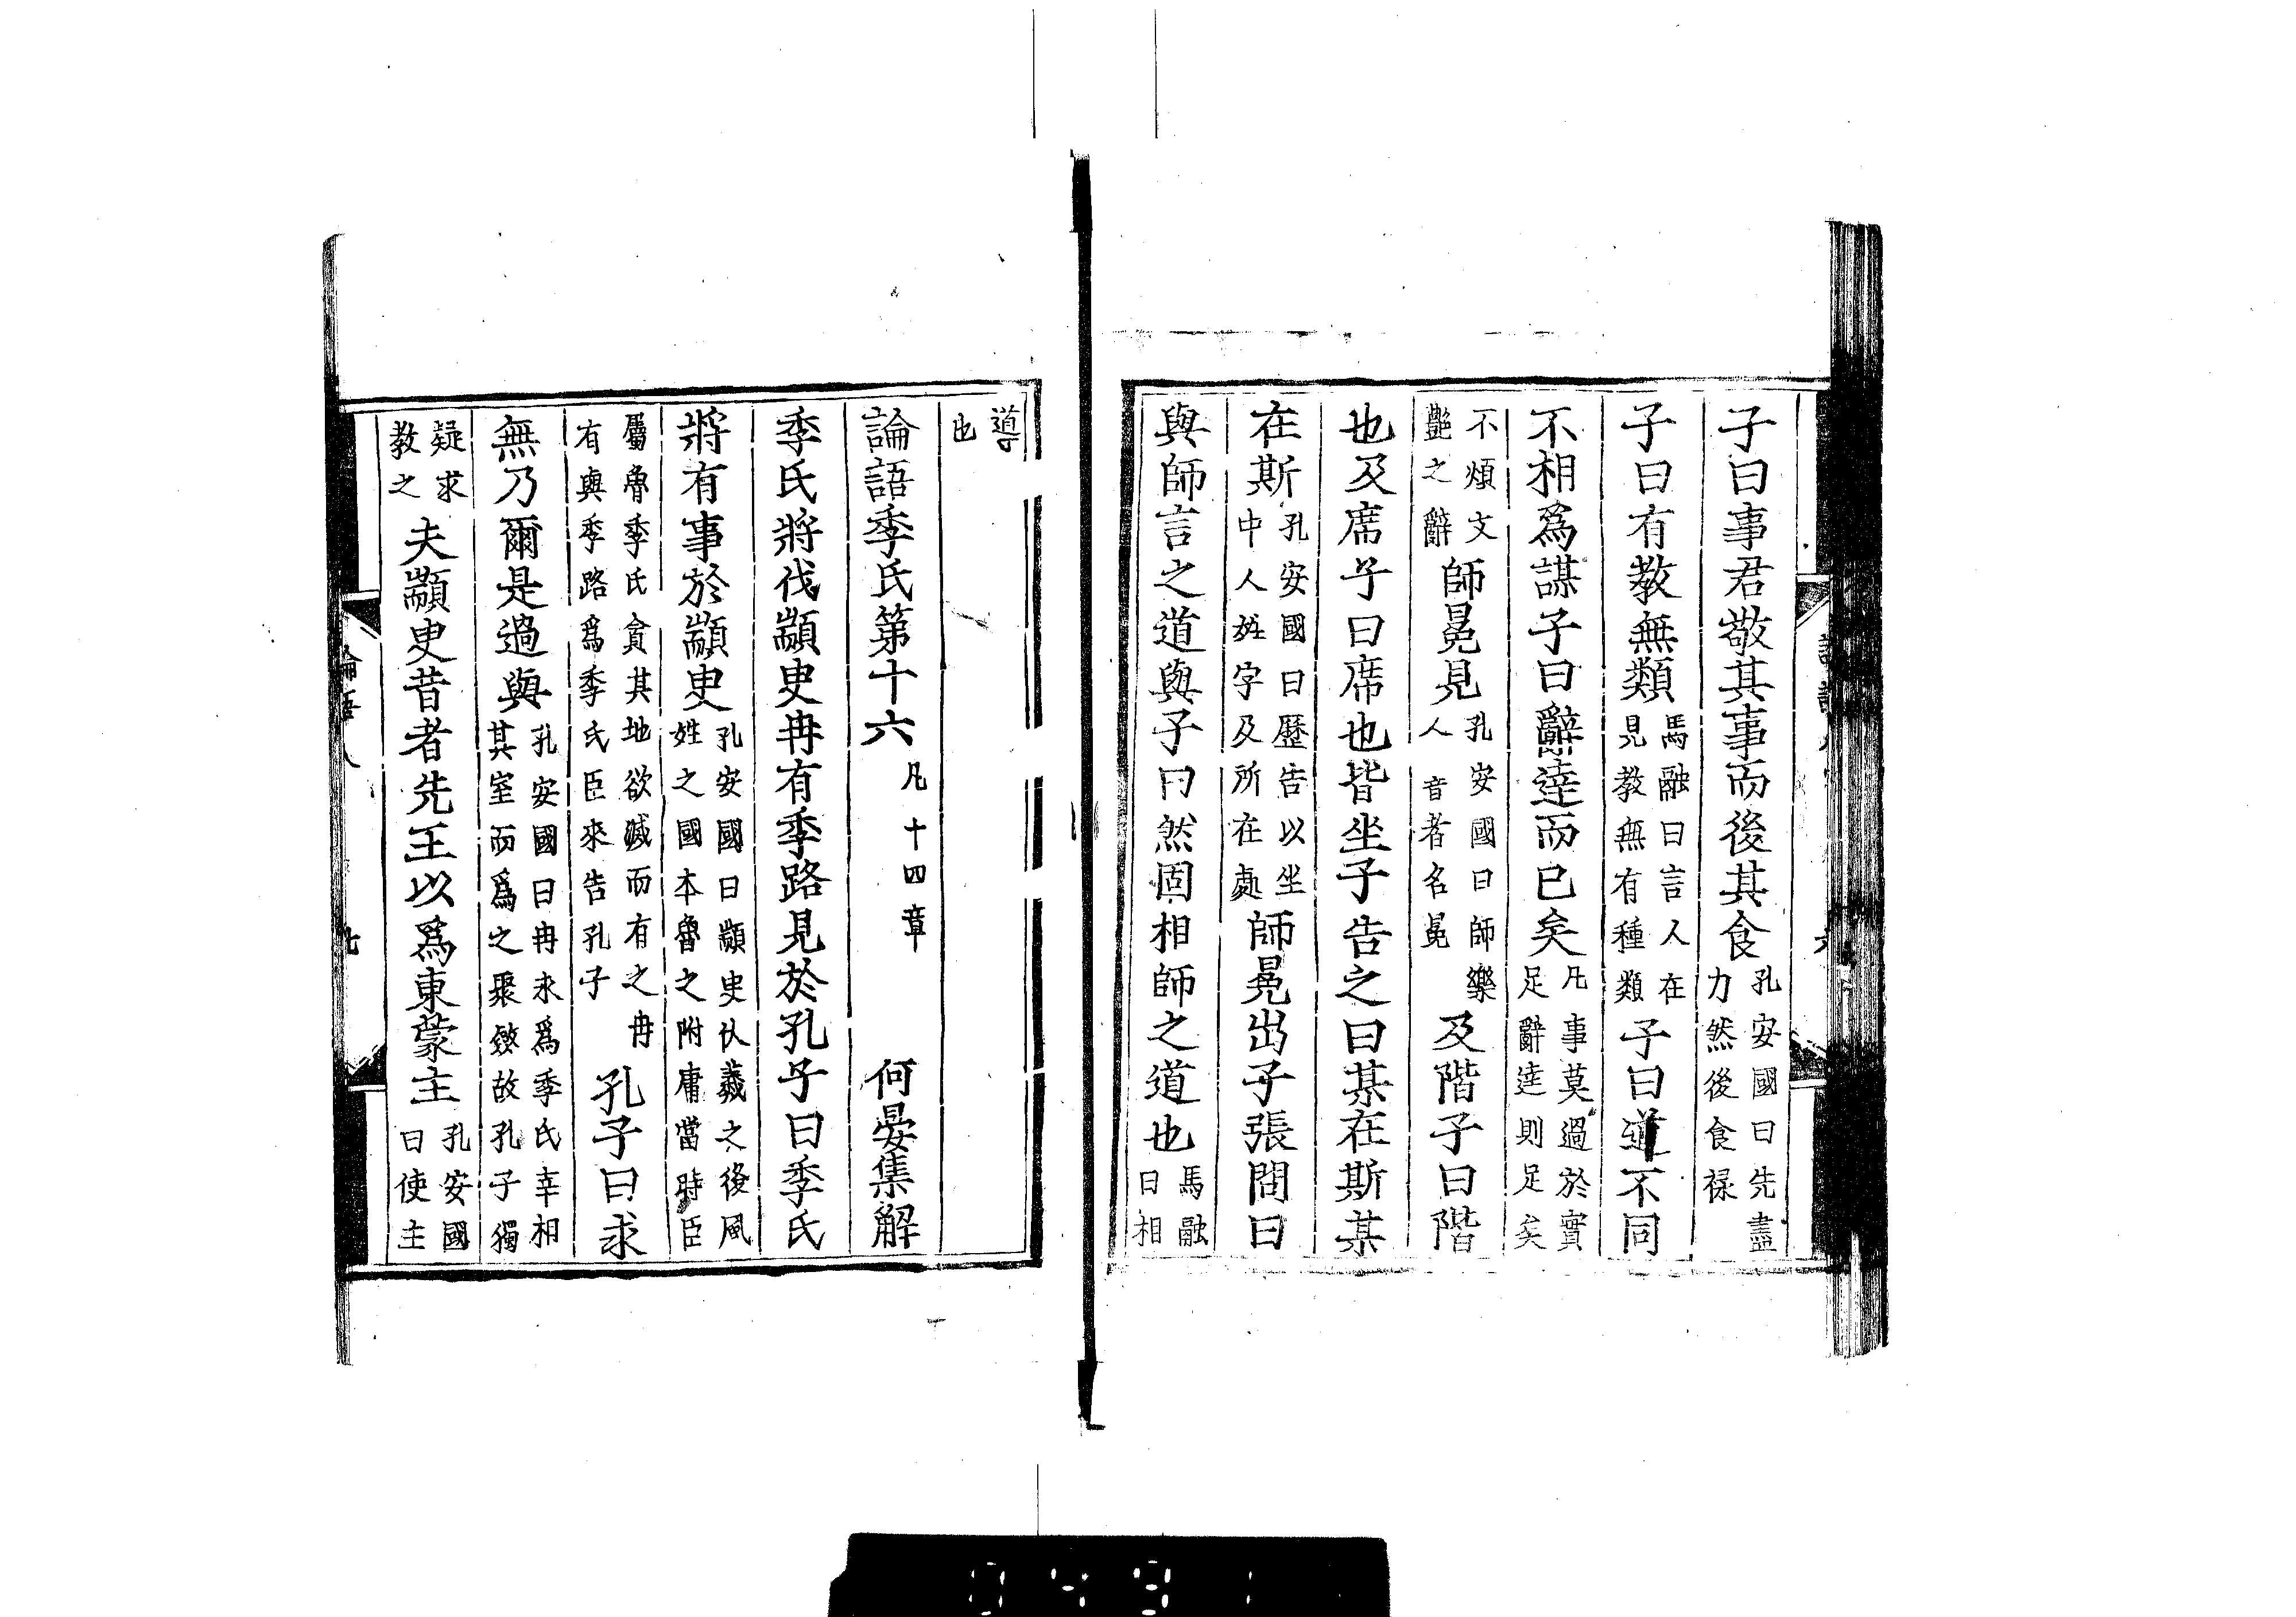 子曰事君敬其事而後其食孔安國曰先盡力然後食禄
子曰有教無類馬融曰言人在見教無有種類子曰道不同
不相爲謀子曰辭達而已矣凡事莫過於實足辭達則足矣
不煩文艷之辭師冕見孔安國曰師樂人音者名冕及階子曰階
也及席子曰席也皆坐子告之曰某在斯某
在斯孔安國曰歷告以坐中人姓字及所在處師冕出子張問曰
與師言之道與子曰然固相師之道也馬融曰相
導也
論語季氏第十六凡十四章 何晏集解
季氏將伐顓臾冉有季路見於孔子曰季氏
將有事於顓臾孔安國曰顓臾伏羲之後風姓之國本魯之附庸當時臣
屬魯季氏貪其地欲滅而有之冉有與季路爲季氏臣來告孔子孔子曰求
無乃爾是過與孔安國曰冉求爲季氏宰相其室而爲之聚斂故孔子獨
疑求教之夫顓臾昔者先王以爲東蒙主孔安國曰使主
論語八